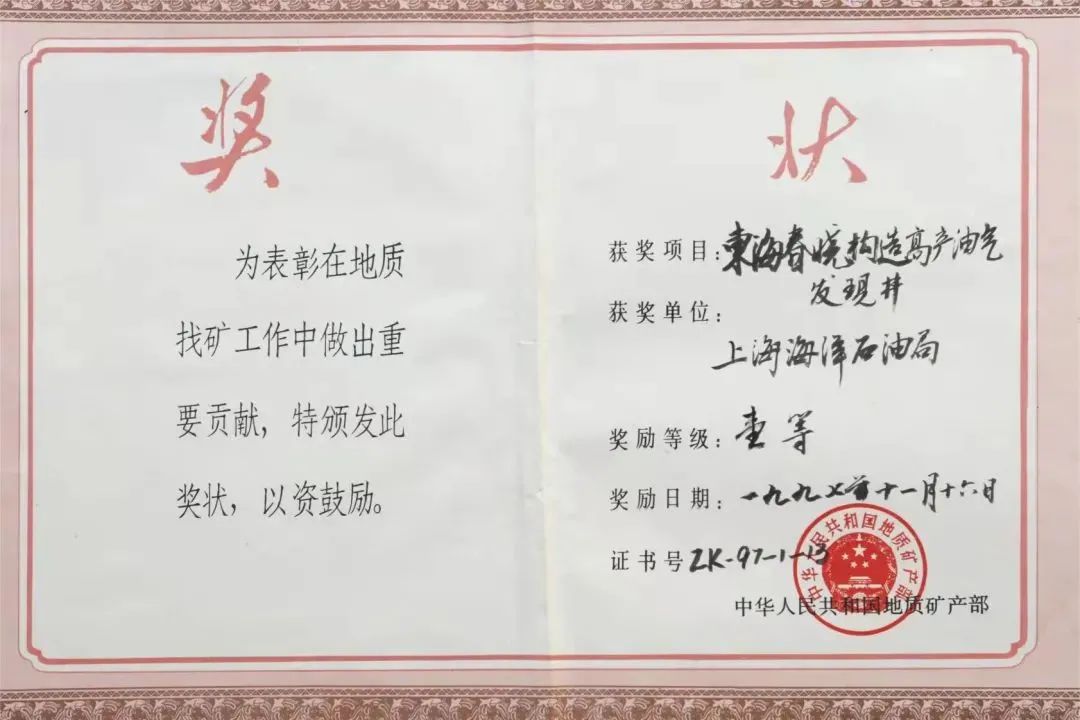 奖
为表彰在地质
找矿工作中做出重
要贡献，特颁发此
奖状，以资鼓励。
状
获奖项目：東海春晓构造高产油气
发现井
获奖单位：
上海海洋石油局
奖励等级：壹等
奖励日期：一九九七年十一月十六日
证书号 ZK-97-1-13
中华人民共和国地质矿产部
中华人民共和国地质矿产部